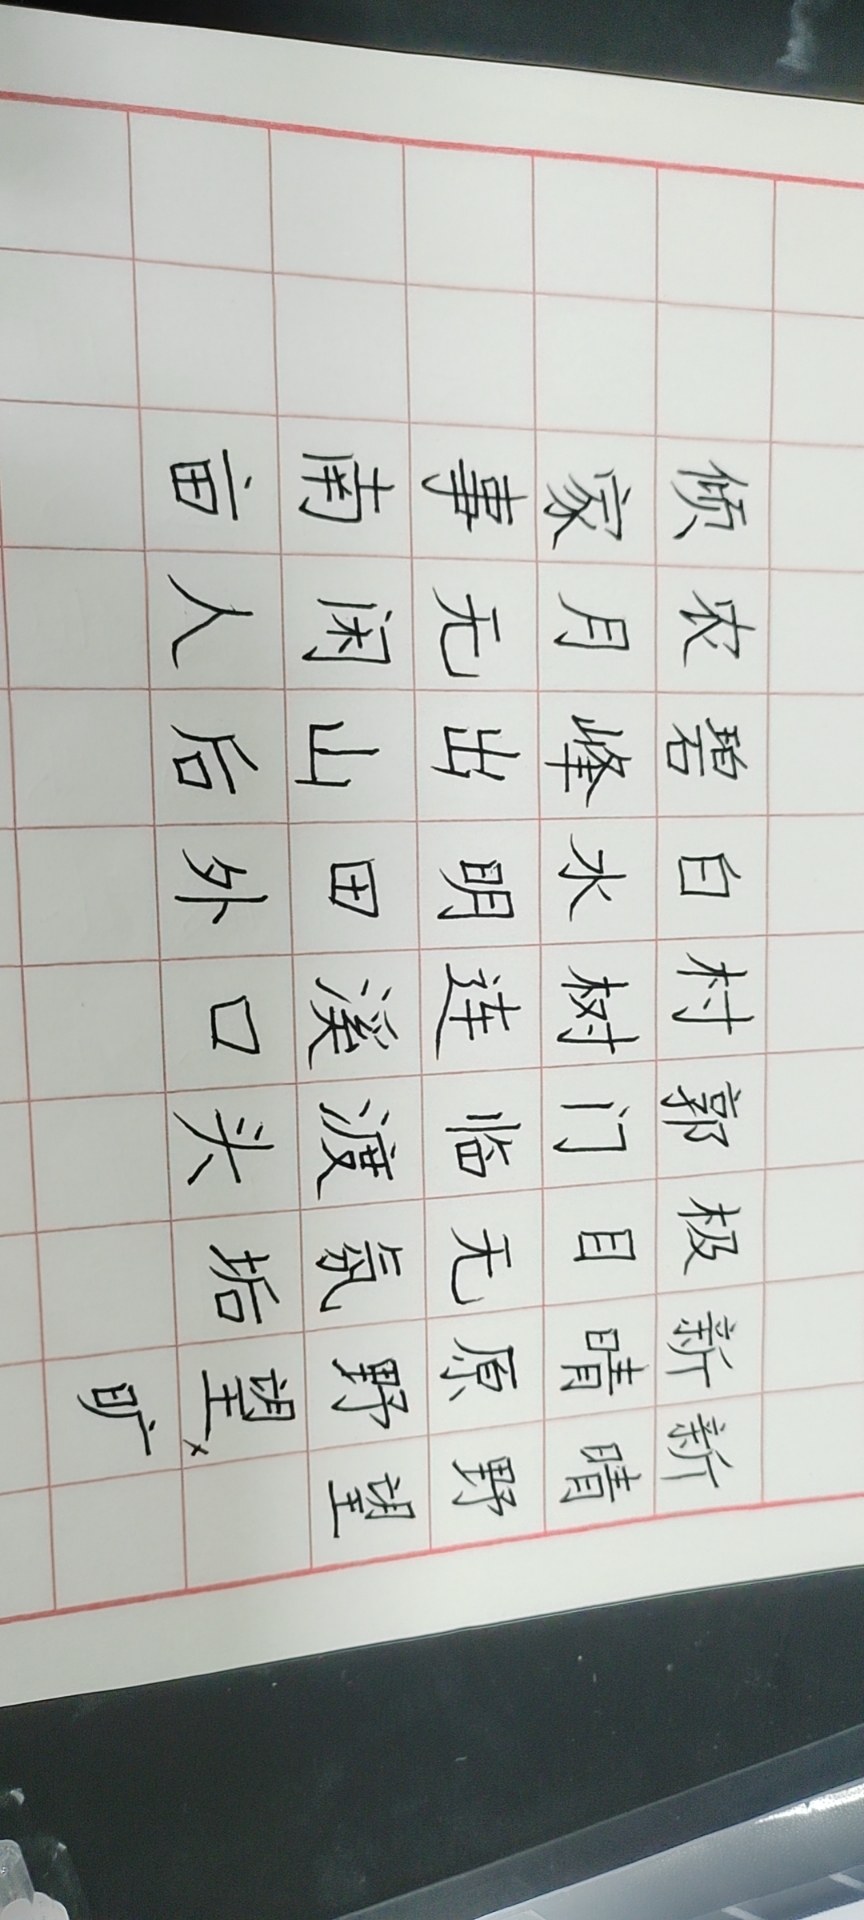 新晴野望
新晴原野望×旷
极目无氛垢
郭门临渡头
村树连溪口
白水明田外
碧峰出山后
农月无闲人
倾家事南亩